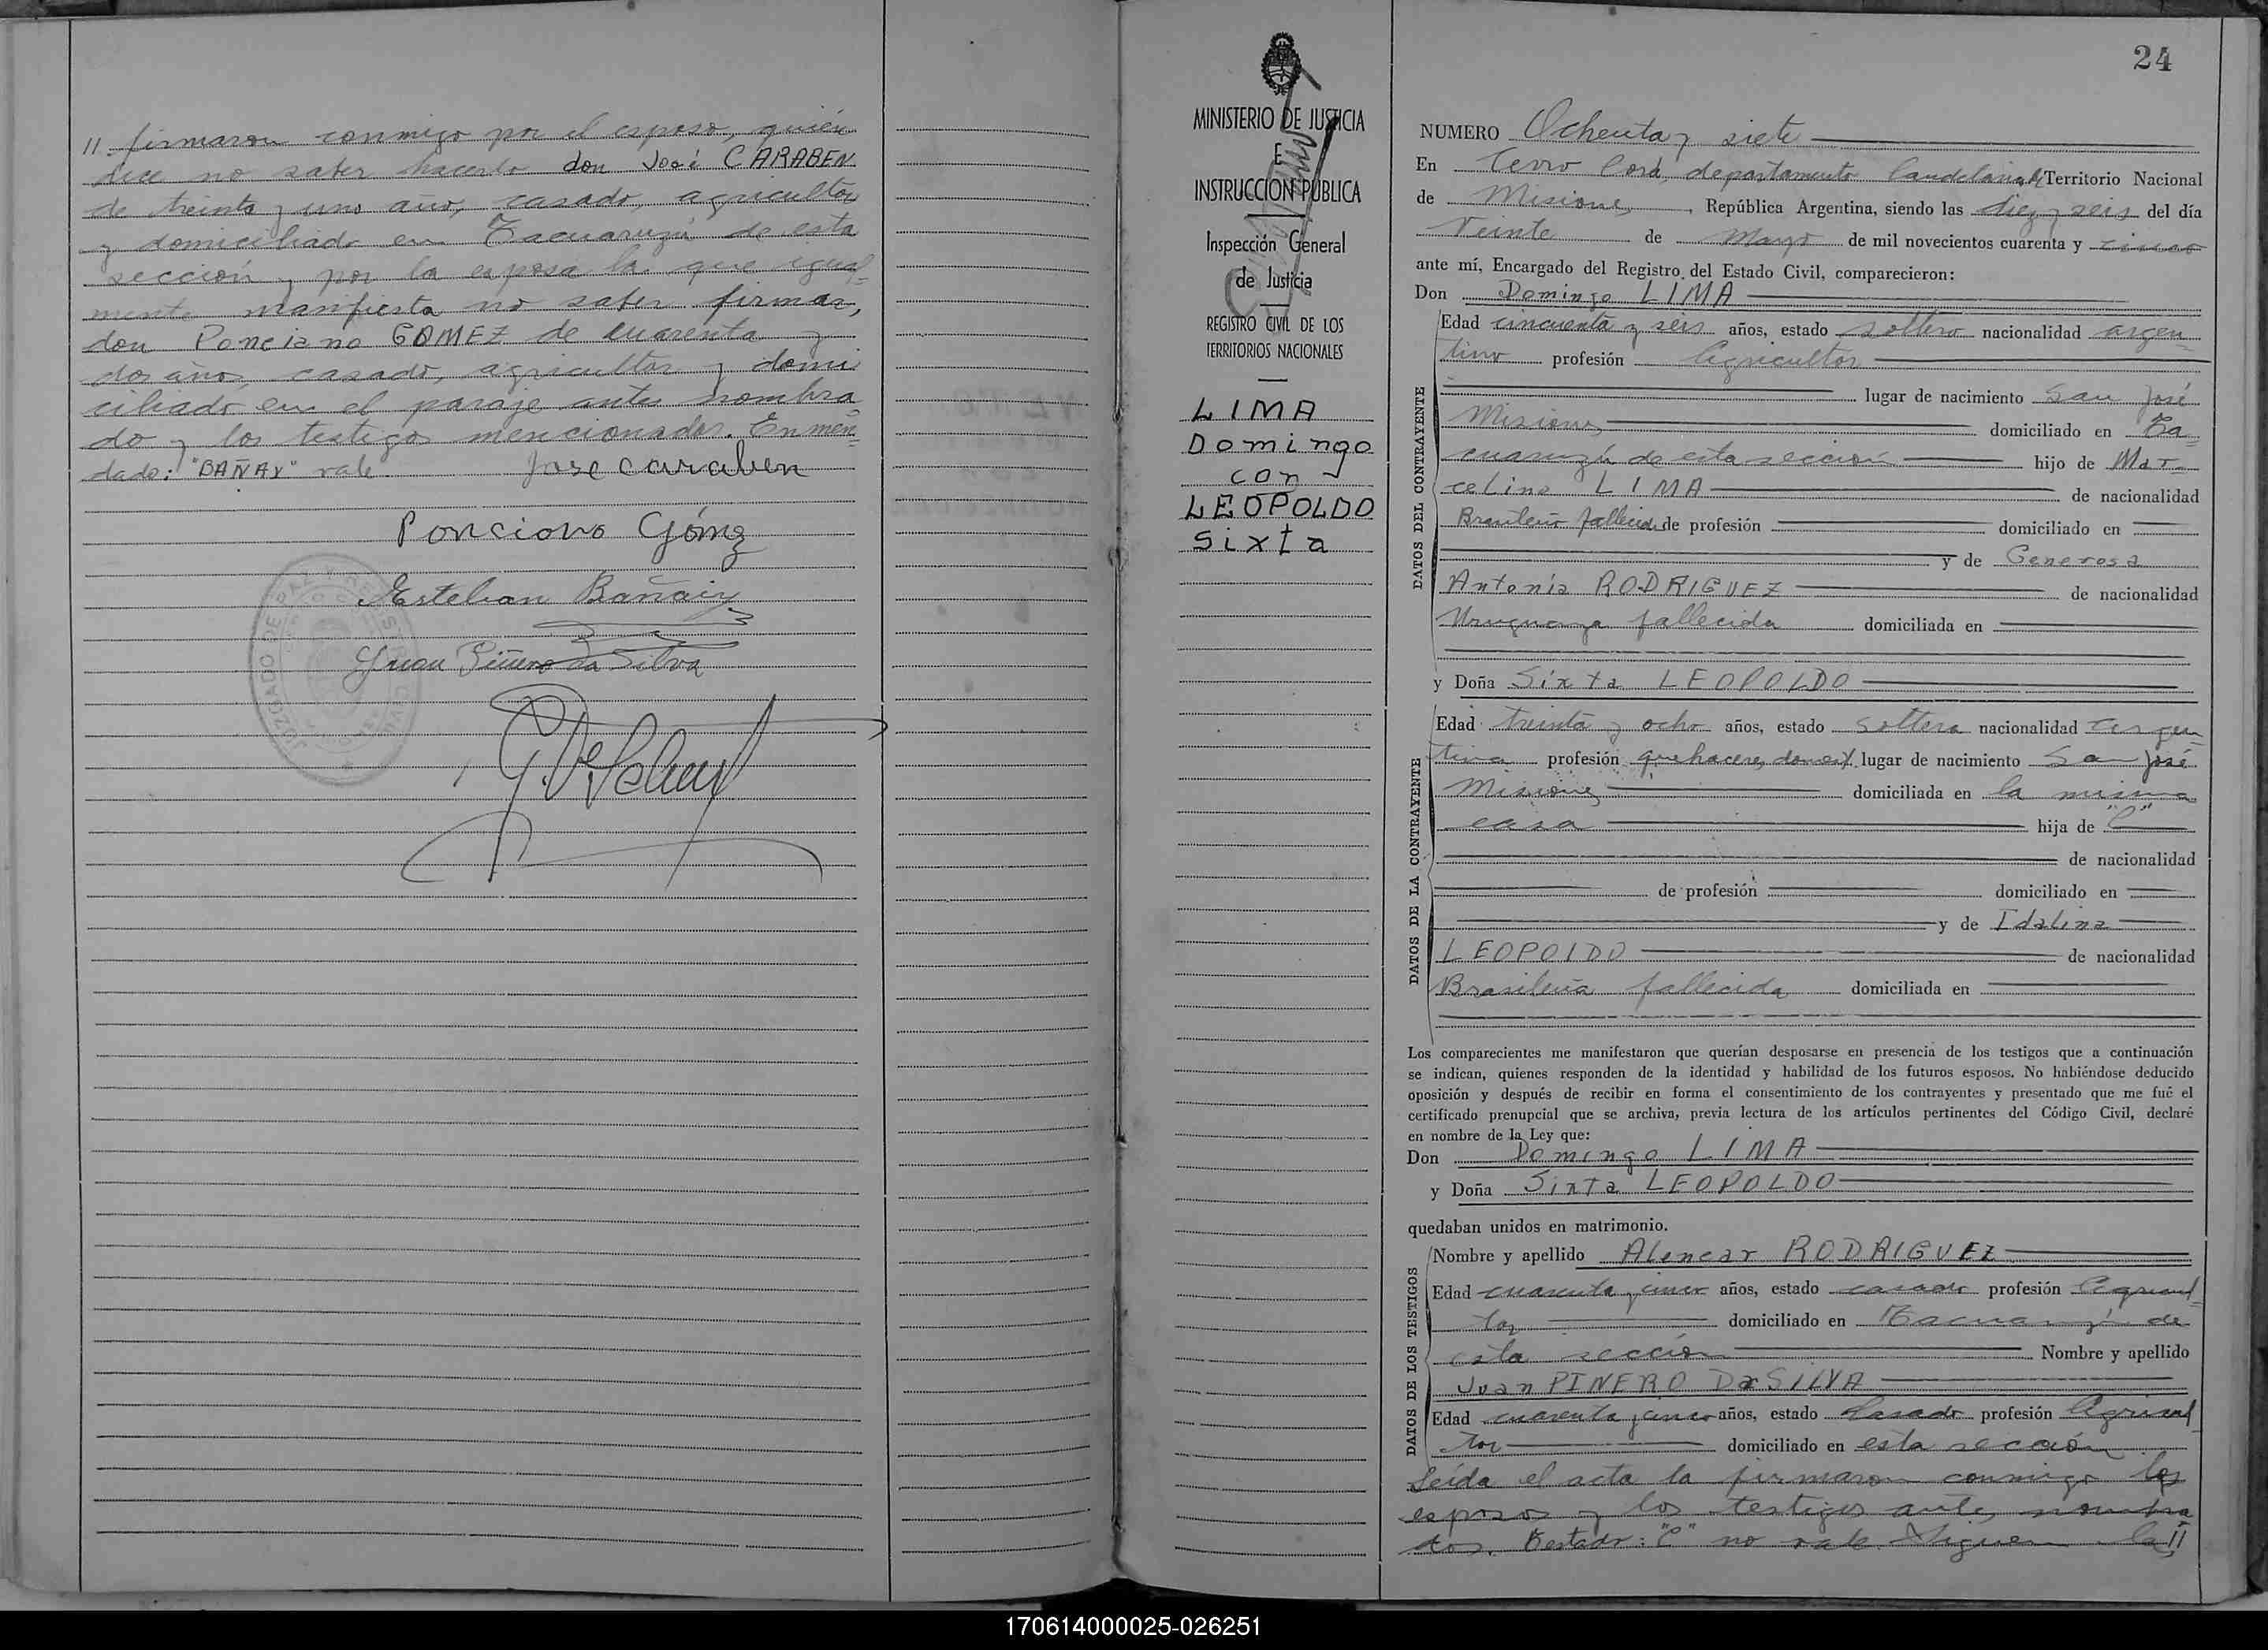 // firmaron conmigo por el esposo, quién
dice no saber hacerlo don José CARABEN
de treinta y uno año, casado, agricultor
y domiciliado en Tacuaruzú de esta
sección y por la esposa la que igual-
mente manifiesta no saber firmar,
don Ponciano GOMEZ de cuarenta y
dos años, casado, agricultor y domi
ciliado en el paraje antes nombra
do y los testigos mencionados. Enmen-
dado: "BAÑAY" vale.
Jose caraben
Ponciono Gómz
Esteban Bañaiy
Juan Piñero da Silva
MINISTERIO DE JUSTICIA
E
INSTRUCCION PUBLICA
Inspección General
de Justicia
REGISTRO CIVIL DE LOS
TERRITORIOS NACIONALES
LIMA
Domingo
con
LEOPOLDO
Sixta
24
NUMERO Ochenta y siete
En Cerro Corá, departamento Candelaria Territorio Nacional
de Misiones, República Argentina, siendo las diez y seis del día
Veinte de Mayo de mil novecientos cuarenta y cinco
ante mí, Encargado del Registro del Estado Civil, comparecieron:
Don Domingo LIMA
DATOS DEL CONTRAYENTE
Edad cincuenta y seis años, estado soltero nacionalidad argen-
tino profesión Agricultor
lugar de nacimiento San José
Misiones domiciliado en Ta-
cuaruzú de esta sección hijo de Mar-
celino LIMA de nacionalidad
Brasileño fallecido de profesión domiciliado en
y de Generosa
Antonia RODRIGUEZ de nacionalidad
Uruguaya fallecida domiciliada en
y Doña Sixta LEOPOLDO
DATOS DE LA CONTRAYENTE
Edad treinta y ocho años, estado soltera nacionalidad argen-
tina profesión quehaceres domést. lugar de nacimiento San José
Misiones domiciliada en la misma
casa hija de "C"
de nacionalidad
de profesión domiciliado en
y de Idalina
LEOPOLDO de nacionalidad
Brasileña fallecida domiciliada en
Los comparecientes me manifestaron que querían desposarse en presencia de los testigos que a continuación
se indican, quienes responden de la identidad y habilidad de los futuros esposos. No habiéndose deducido
oposición y después de recibir en forma el consentimiento de los contrayentes y presentado que me fué el
certificado prenupcial que se archiva, previa lectura de los artículos pertinentes del Código Civil, declaré
en nombre de la Ley que:
Don Domingo LIMA
y Doña Sixta LEOPOLDO
quedaban unidos en matrimonio.
DATOS DE LOS TESTIGOS
Nombre y apellido Alencar RODRIGUEZ
Edad cuarenta y cinco años, estado casado profesión Agricul-
tor domiciliado en Tacuaruzú de
esta sección Nombre y apellido
Juan PINERO Da SILVA
Edad cuarenta y cinco años, estado Casado profesión Agricul-
tor domiciliado en esta sección
Leída el acta la firmaron conmigo los
esposos y los testigos antes nombra
dos. Testado: "C" no vale. Siguen las //
170614000025-026251